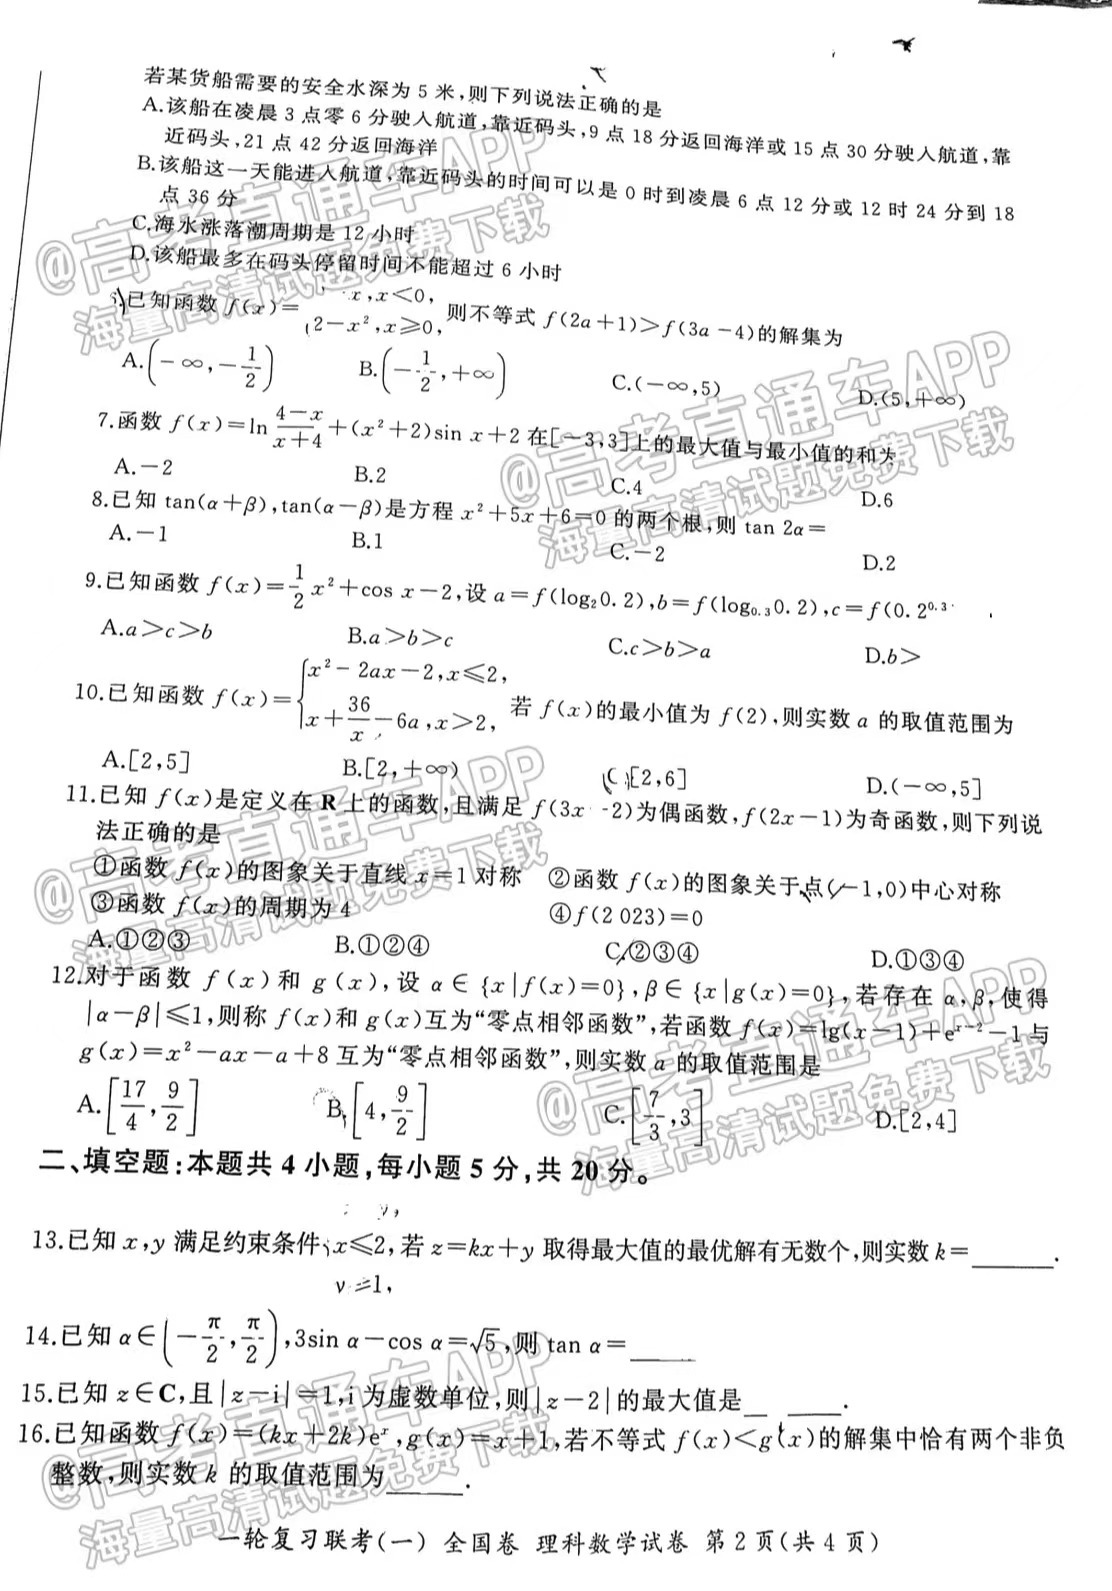 若某货船需要的安全水深为 5 米,则下列说法正确的是
A.该船在凌晨 3 点零 6 分驶入航道,靠近码头,9 点 18 分返回海洋或 15 点 30 分驶入航道,靠
近码头,21 点 42 分返回海洋
B.该船这一天能进入航道,靠近码头的时间可以是 0 时到凌晨 6 点 12 分或 12 时 24 分到 18
点 36 分
C.海水涨落潮周期是 12 小时
D.该船最多在码头停留时间不能超过 6 小时
已知函数 f(x)={ x,x<0, 2-x²,x≥0, 则不等式 f(2a+1)>f(3a-4)的解集为
A.(-∞,-1/2) B.(-1/2,+∞) C.(-∞,5) D.(5,+∞)
7.函数 f(x)=ln (4-x)/(x+4) +(x²+2)sin x+2 在[-3,3]上的最大值与最小值的和为
A.-2 B.2 C.4 D.6
8.已知 tan(α+β),tan(α-β)是方程 x²+5x+6=0 的两个根,则 tan 2α=
A.-1 B.1 C.-2 D.2
9.已知函数 f(x)=1/2 x²+cos x-2,设 a=f(log₂0.2),b=f(log₀.₃0.2),c=f(0.2⁰·³
A.a>c>b B.a>b>c C.c>b>a D.b>
10.已知函数 f(x)={x²-2ax-2,x≤2, x+36/x-6a,x>2, 若 f(x)的最小值为 f(2),则实数 a 的取值范围为
A.[2,5] B.[2,+∞) C.[2,6] D.(-∞,5]
11.已知 f(x)是定义在 R 上的函数,且满足 f(3x -2)为偶函数,f(2x-1)为奇函数,则下列说
法正确的是
①函数 f(x)的图象关于直线 x=1 对称 ②函数 f(x)的图象关于点(-1,0)中心对称
③函数 f(x)的周期为 4 ④f(2 023)=0
A.①②③ B.①②④ C.②③④ D.①③④
12.对于函数 f(x)和 g(x),设 α∈{x|f(x)=0},β∈{x|g(x)=0},若存在 α,β,使得
|α-β|≤1,则称 f(x)和 g(x)互为“零点相邻函数”,若函数 f(x)=lg(x-1)+eˣ⁻²-1与
g(x)=x²-ax-a+8 互为“零点相邻函数”,则实数 a 的取值范围是
A.[17/4,9/2] B.[4,9/2] C.[7/3,3] D.[2,4]
二、填空题:本题共 4 小题,每小题 5 分,共 20 分。
13.已知 x,y 满足约束条件{ x≤2, y≥1, 若 z=kx+y 取得最大值的最优解有无数个,则实数 k=______.
14.已知 α∈(-π/2,π/2),3sin α-cos α=√5,则 tan α=______
15.已知 z∈C,且|z-i|=1,i 为虚数单位,则|z-2|的最大值是______.
16.已知函数 f(x)=(kx+2k)eˣ,g(x)=x+1,若不等式 f(x)<g(x)的解集中恰有两个非负
整数,则实数 k 的取值范围为______.
一轮复习联考(一) 全国卷 理科数学试卷 第 2 页(共 4 页)
@高考直通车APP
海量高清试题免费下载
@高考直通车APP
海量高清试题免费下载
@高考直通车APP
海量高清试题免费下载
@高考直通车APP
海量高清试题免费下载
@高考直通车APP
海量高清试题免费下载